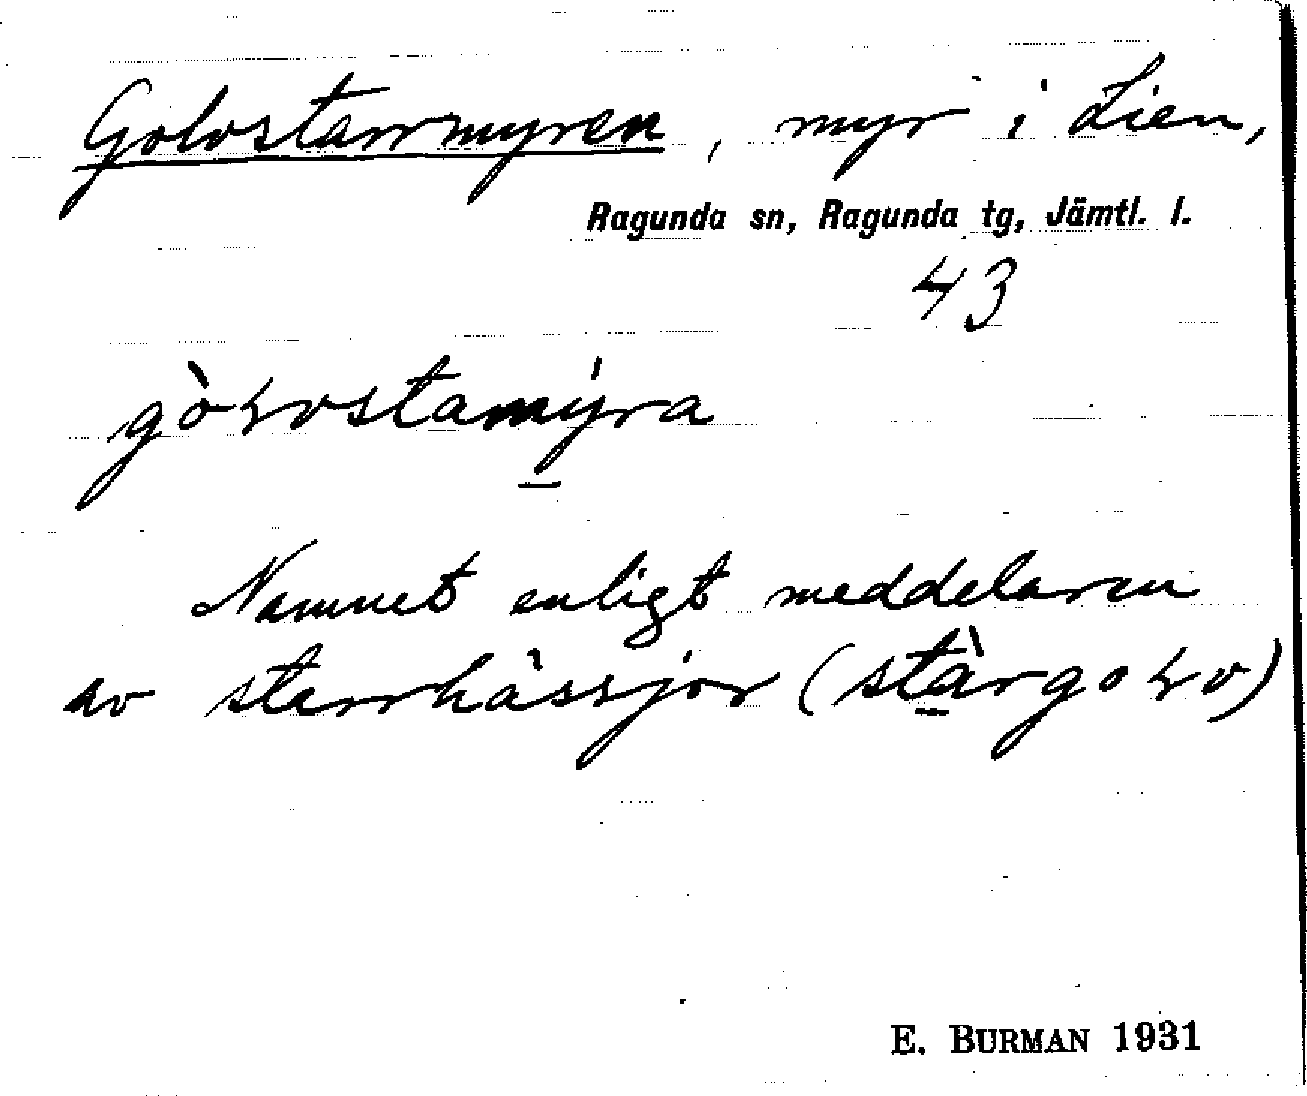 Golvstarrmyren, myr i Lien,
Ragunda sn, Ragunda tg, Jämtl. l.
43
gòɽvstamýra
Namnet enligt meddelaren
av starrhässjor (stàrgoɽv)
E. BURMAN 1931